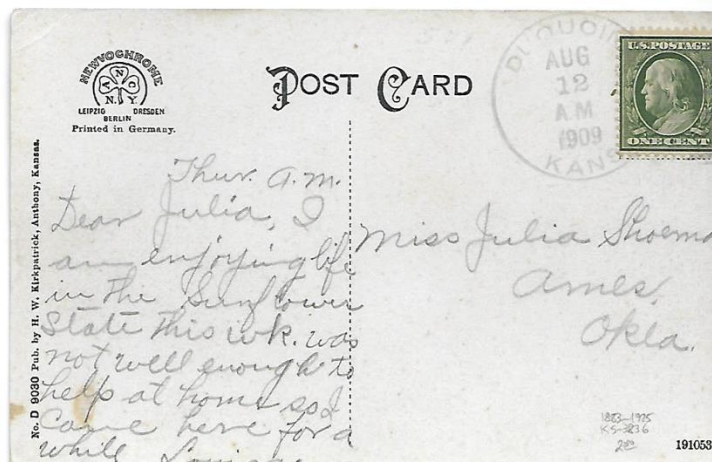 NEWVOCHROME
A N O
N. Y.
LEIPZIG DRESDEN
BERLIN
Printed in Germany.
POST CARD
DUQUOIN
AUG
12
A.M
1909
KANS
U.S. POSTAGE
ONE CENT
No. D 9030 Pub. by H. W. Kirkpatrick, Anthony, Kansas.
Thur. A.M.
Dear Julia, I
am enjoying life
in the Sunflower
State this wk. was
not well enough to
help at home so I
came here for a
while Louisae
Miss Julia Shoema
Ames,
Okla.
1883-1925
KS-3236
191053